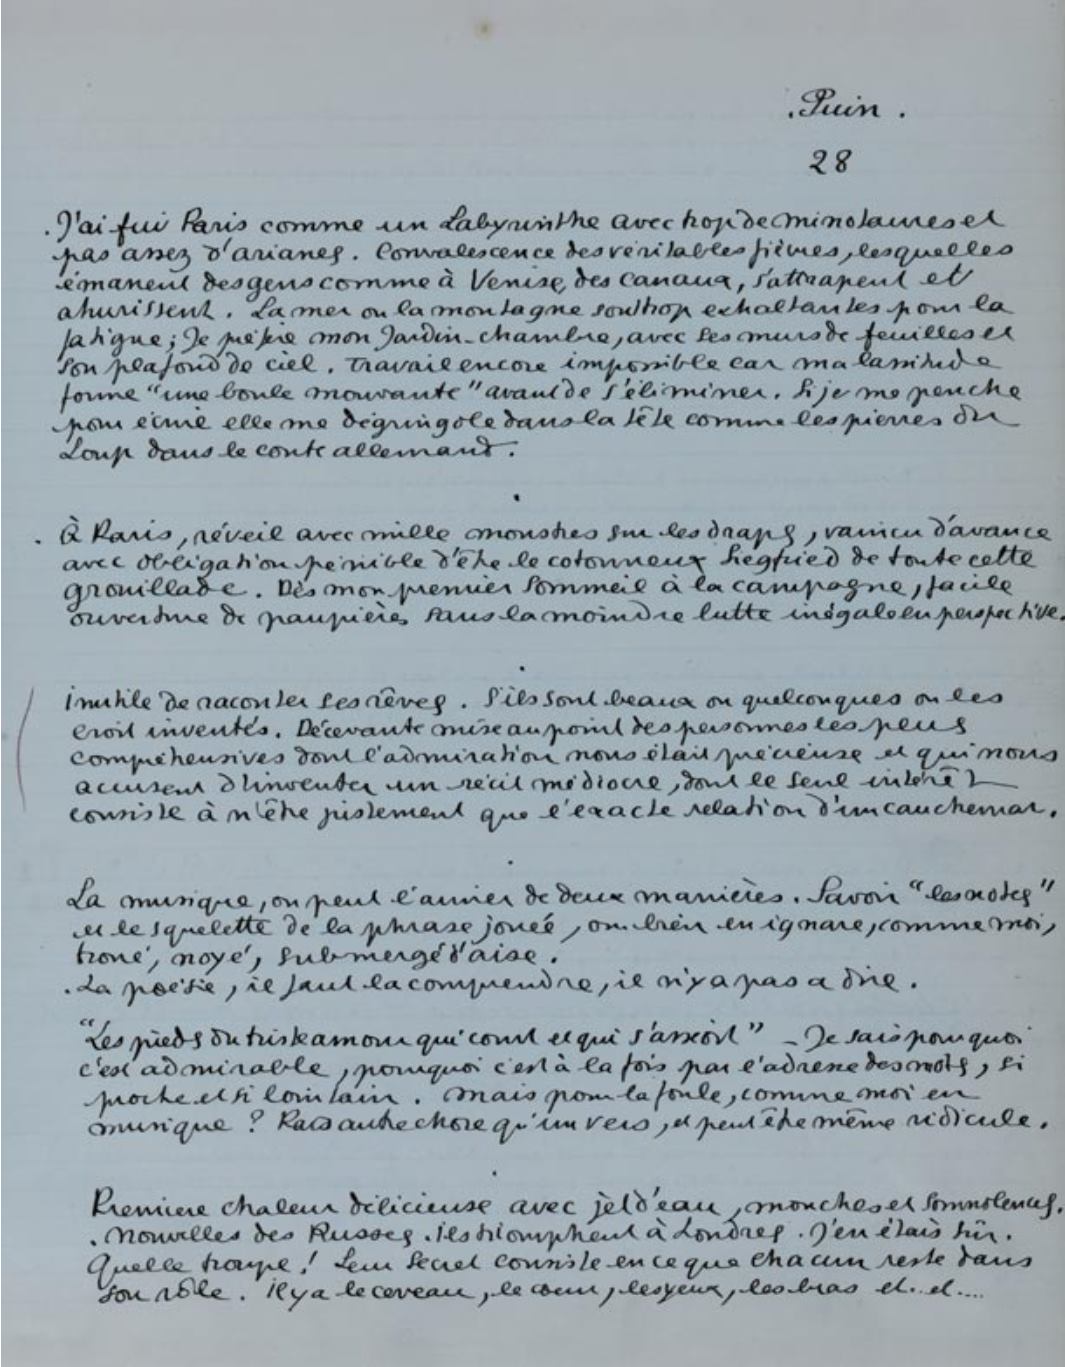 . Juin .
28
. J'ai fui Paris comme un Labyrinthe avec trop de minotaures et
pas assez d'arianes. Convalescence des véritables fièvres, lesquelles
émanent des gens comme à Venise, des canaux, s'attrapent et
ahurissent. La mer ou la montagne sont trop exhaltantes pour la
fatigue ; Je préfère mon Jardin-chambre, avec ses murs de feuilles et
son plafond de ciel. Travail encore impossible car ma lassitude
forme "une boule mouvante" avant de s'éliminer. Si je me penche
pour écrire elle me dégringole dans la tête comme les pierres du
Loup dans le conte allemand.
.
. À Paris, réveil avec mille monstres sur les draps, vaincu d'avance
avec obligation pénible d'être le cotonneux Siegfried de toute cette
grouillade. Dès mon premier sommeil à la campagne, facile
ouverture de paupières sans la moindre lutte inégale en perspective.
.
inutile de raconter ses rêves. S'ils sont beaux ou quelconques on les
croit inventés. Décevante mise au point des personnes les plus
compréhensives dont l'admiration nous était précieuse et qui nous
accusent d'inventer un récit médiocre, dont le seul intérêt
consiste à n'être justement que l'exacte relation d'un cauchemar.
.
La musique, on peut l'aimer de deux manières. Savoir "les notes"
et le squelette de la phrase jouée, ou bien en ignare, comme moi,
troué, noyé, submergé d'aise.
. La poésie, il faut la comprendre, il n'y a pas a dire.
"Les pieds du triste amour qui court et qui s'asseoit" - Je sais pourquoi
c'est admirable, pourquoi c'est à la fois par l'adresse des mots, si
proche et si lointain. Mais pour la foule, comme moi en
musique ? Pas autre chose qu'un vers, et peut être même ridicule.
.
Premiere chaleur délicieuse avec jet d'eau, mouches et somnolences.
. Nouvelles des Russes. ils triomphent à Londres. J'en étais sûr.
Quelle troupe ! Leur secret consiste en ce que chacun reste dans
son rôle. il y a le cerveau, le cœur, les yeux, les bras et.. et....